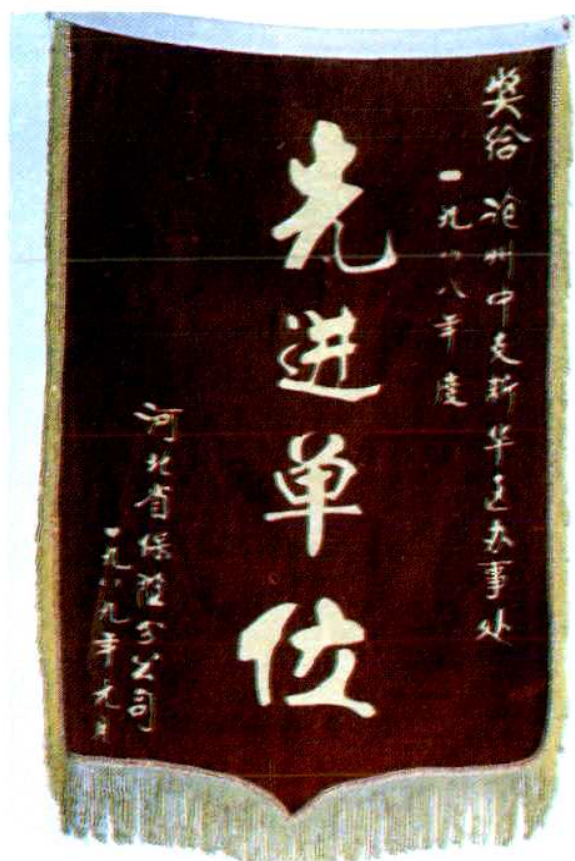 奖给 沧州中支新华区办事处
一九八八年度
先进单位
河北省保险分公司
一九八九年元月